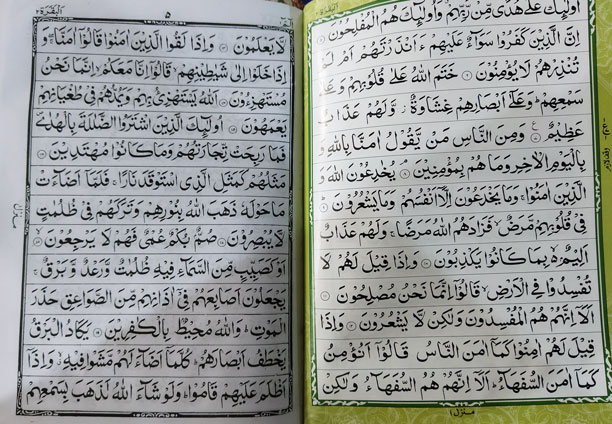 اُولٰٓئِكَ عَلٰى هُدًى مِّنْ رَّبِّهِمْ وَاُولٰٓئِكَ هُمُ الْمُفْلِحُوْنَ
اِنَّ الَّذِيْنَ كَفَرُوْا سَوَآءٌ عَلَيْهِمْ ءَاَنْذَرْتَهُمْ اَمْ لَمْ
تُنْذِرْهُمْ لَا يُؤْمِنُوْنَ ۝ خَتَمَ اللّٰهُ عَلٰى قُلُوْبِهِمْ وَعَلٰى
سَمْعِهِمْ ؕ وَعَلٰٓى اَبْصَارِهِمْ غِشَاوَةٌ ؗ وَّلَهُمْ عَذَابٌ
عَظِيْمٌ ۝ وَمِنَ النَّاسِ مَنْ يَّقُوْلُ اٰمَنَّا بِاللّٰهِ وَ
بِالْيَوْمِ الْاٰخِرِ وَمَا هُمْ بِمُؤْمِنِيْنَ ۝ يُخٰدِعُوْنَ اللّٰهَ وَ
الَّذِيْنَ اٰمَنُوْا ۚ وَمَا يَخْدَعُوْنَ اِلَّآ اَنْفُسَهُمْ وَمَا يَشْعُرُوْنَ ۝
فِيْ قُلُوْبِهِمْ مَّرَضٌ ۙ فَزَادَهُمُ اللّٰهُ مَرَضًا ۚ وَلَهُمْ عَذَابٌ
اَلِيْمٌۢ ۙ بِمَا كَانُوْا يَكْذِبُوْنَ ۝ وَاِذَا قِيْلَ لَهُمْ لَا
تُفْسِدُوْا فِي الْاَرْضِ ۙ قَالُوْٓا اِنَّمَا نَحْنُ مُصْلِحُوْنَ ۝
اَلَآ اِنَّهُمْ هُمُ الْمُفْسِدُوْنَ وَلٰكِنْ لَّا يَشْعُرُوْنَ ۝ وَاِذَا
قِيْلَ لَهُمْ اٰمِنُوْا كَمَآ اٰمَنَ النَّاسُ قَالُوْٓا اَنُؤْمِنُ
كَمَآ اٰمَنَ السُّفَهَآءُ ؕ اَلَآ اِنَّهُمْ هُمُ السُّفَهَآءُ وَلٰكِنْ
منزل ١
البقرة ٢
٥
لَّا يَعْلَمُوْنَ ۝ وَاِذَا لَقُوا الَّذِيْنَ اٰمَنُوْا قَالُوْٓا اٰمَنَّا ۖۚ وَ
اِذَا خَلَوْا اِلٰى شَيٰطِيْنِهِمْ ۙ قَالُوْٓا اِنَّا مَعَكُمْ ۙ اِنَّمَا نَحْنُ
مُسْتَهْزِءُوْنَ ۝ اَللّٰهُ يَسْتَهْزِئُ بِهِمْ وَيَمُدُّهُمْ فِيْ طُغْيَانِهِمْ
يَعْمَهُوْنَ ۝ اُولٰٓئِكَ الَّذِيْنَ اشْتَرَوُا الضَّلٰلَةَ بِالْهُدٰى ۪
فَمَا رَبِحَتْ تِّجَارَتُهُمْ وَمَا كَانُوْا مُهْتَدِيْنَ ۝
مَثَلُهُمْ كَمَثَلِ الَّذِي اسْتَوْقَدَ نَارًا ۚ فَلَمَّآ اَضَآءَتْ
مَا حَوْلَهٗ ذَهَبَ اللّٰهُ بِنُوْرِهِمْ وَتَرَكَهُمْ فِيْ ظُلُمٰتٍ
لَّا يُبْصِرُوْنَ ۝ صُمٌّۢ بُكْمٌ عُمْيٌ فَهُمْ لَا يَرْجِعُوْنَ ۝
اَوْ كَصَيِّبٍ مِّنَ السَّمَآءِ فِيْهِ ظُلُمٰتٌ وَّرَعْدٌ وَّبَرْقٌ ۚ
يَجْعَلُوْنَ اَصَابِعَهُمْ فِيْٓ اٰذَانِهِمْ مِّنَ الصَّوَاعِقِ حَذَرَ
الْمَوْتِ ؕ وَاللّٰهُ مُحِيْطٌۢ بِالْكٰفِرِيْنَ ۝ يَكَادُ الْبَرْقُ
يَخْطَفُ اَبْصَارَهُمْ ؕ كُلَّمَآ اَضَآءَ لَهُمْ مَّشَوْا فِيْهِ ۙ وَاِذَآ
اَظْلَمَ عَلَيْهِمْ قَامُوْا ؕ وَلَوْ شَآءَ اللّٰهُ لَذَهَبَ بِسَمْعِهِمْ